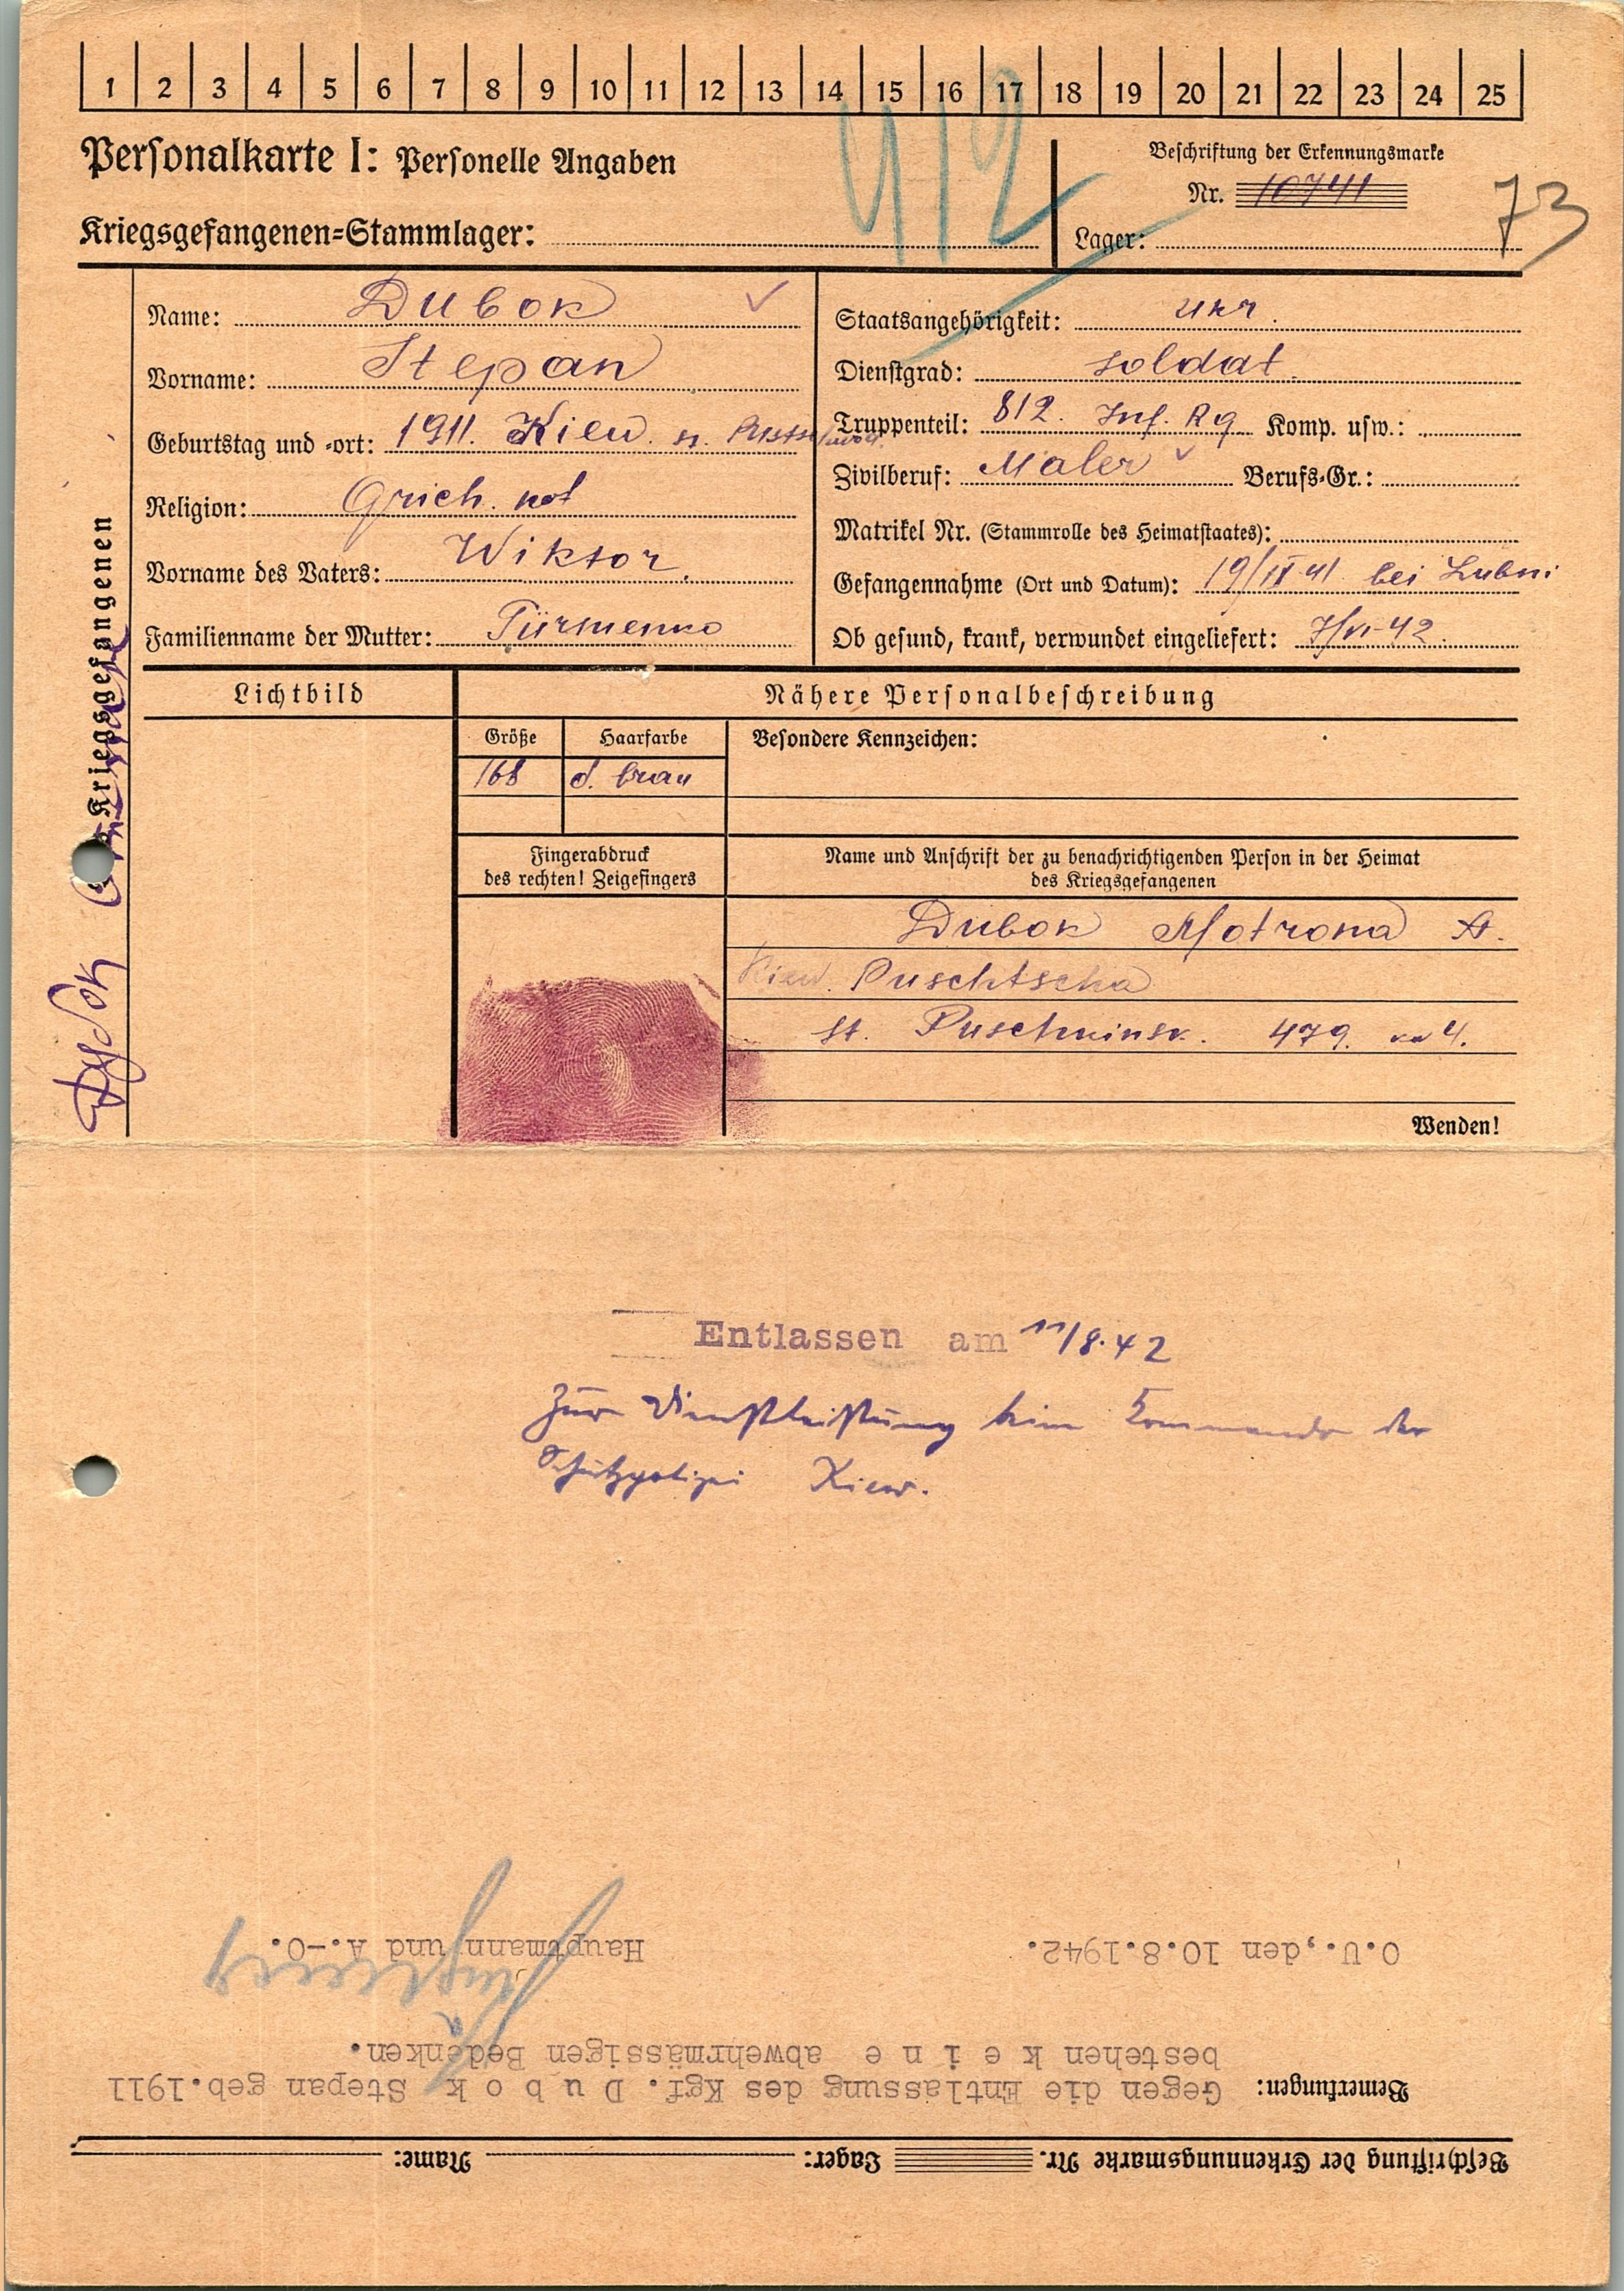 1 2 3 4 5 6 7 8 9 10 11 12 13 14 15 16 17 18 19 20 21 22 23 24 25
412
Personalkarte I: Personelle Angaben
Beschriftung der Erkennungsmarke
Nr. 10741
73
Kriegsgefangenen=Stammlager:
Lager:
Name: Dubok
Vorname: Stepan
Geburtstag und =ort: 1911. Kiew.
Religion: Grich. kot
Vorname des Vaters: Wiktor.
Familienname der Mutter: Türmenko
Staatsangehörigkeit: ukr.
Dienstgrad: soldat
Truppenteil: 812. Inf. Rg Komp. usw.:
Zivilberuf: Maler Berufs=Gr.:
Matrikel Nr. (Stammrolle des Heimatstaates):
Gefangennahme (Ort und Datum): 19/IX 41 bei Lubni
Ob gesund, krank, verwundet eingeliefert: 7/VI-42.
Kriegsgefangenen
Дубок
Lichtbild
Nähere Personalbeschreibung
Größe
Haarfarbe
Besondere Kennzeichen:
168
d. braun
Fingerabdruck
des rechten! Zeigefingers
Name und Anschrift der zu benachrichtigenden Person in der Heimat
des Kriegsgefangenen
Dubok Motrona A.
Kiew. Puschtscha
st. Puschkinsk. 479. 4.
Wenden!
Entlassen am 11/8.42
Zur Dienstleistung beim Kommando der
Schutzpolizei Kiew.
Beschriftung der Erkennungsmarke Nr. Lager: Name:
Bemerkungen: Gegen die Entlassung des Kgf. D u b o k Stepan geb.1911
bestehen k e i n e abwehrmässigen Bedenken.
O.U.,den 10.8.1942.
Hauptmann und A.-O.